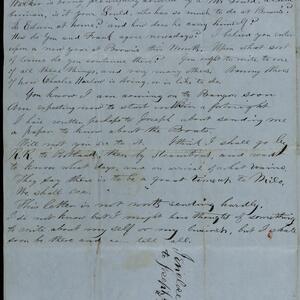 being
business, is it your
is Edwin at home? and how does he carry himself?
How do you and Frank agree nowadays? I believe you enter
upon a new year at Brown's this Month. Upon what sort
of terms do you continue there? You ought to write to me
of all these things, and very many others. Among others
of how Charles is doing, or is like to do.
You know I am coming on to Bangor soon
Am expecting now to start within a fortnight
I have written perhaps to Joseph about sending me
a paper to know about the Boats.
Will not you see to it. I think I shall go by
R.R. to Portland, then by Steamboat, and want
to know what days, and on arrival of what trains.
They say there is to be a grand at Mills.
We shall see.
This letter is not worth sending hardly.
I do not know but I might have thought of something
to write about my self or my business, but I shall
soon be there and can tell all.
to Joseph